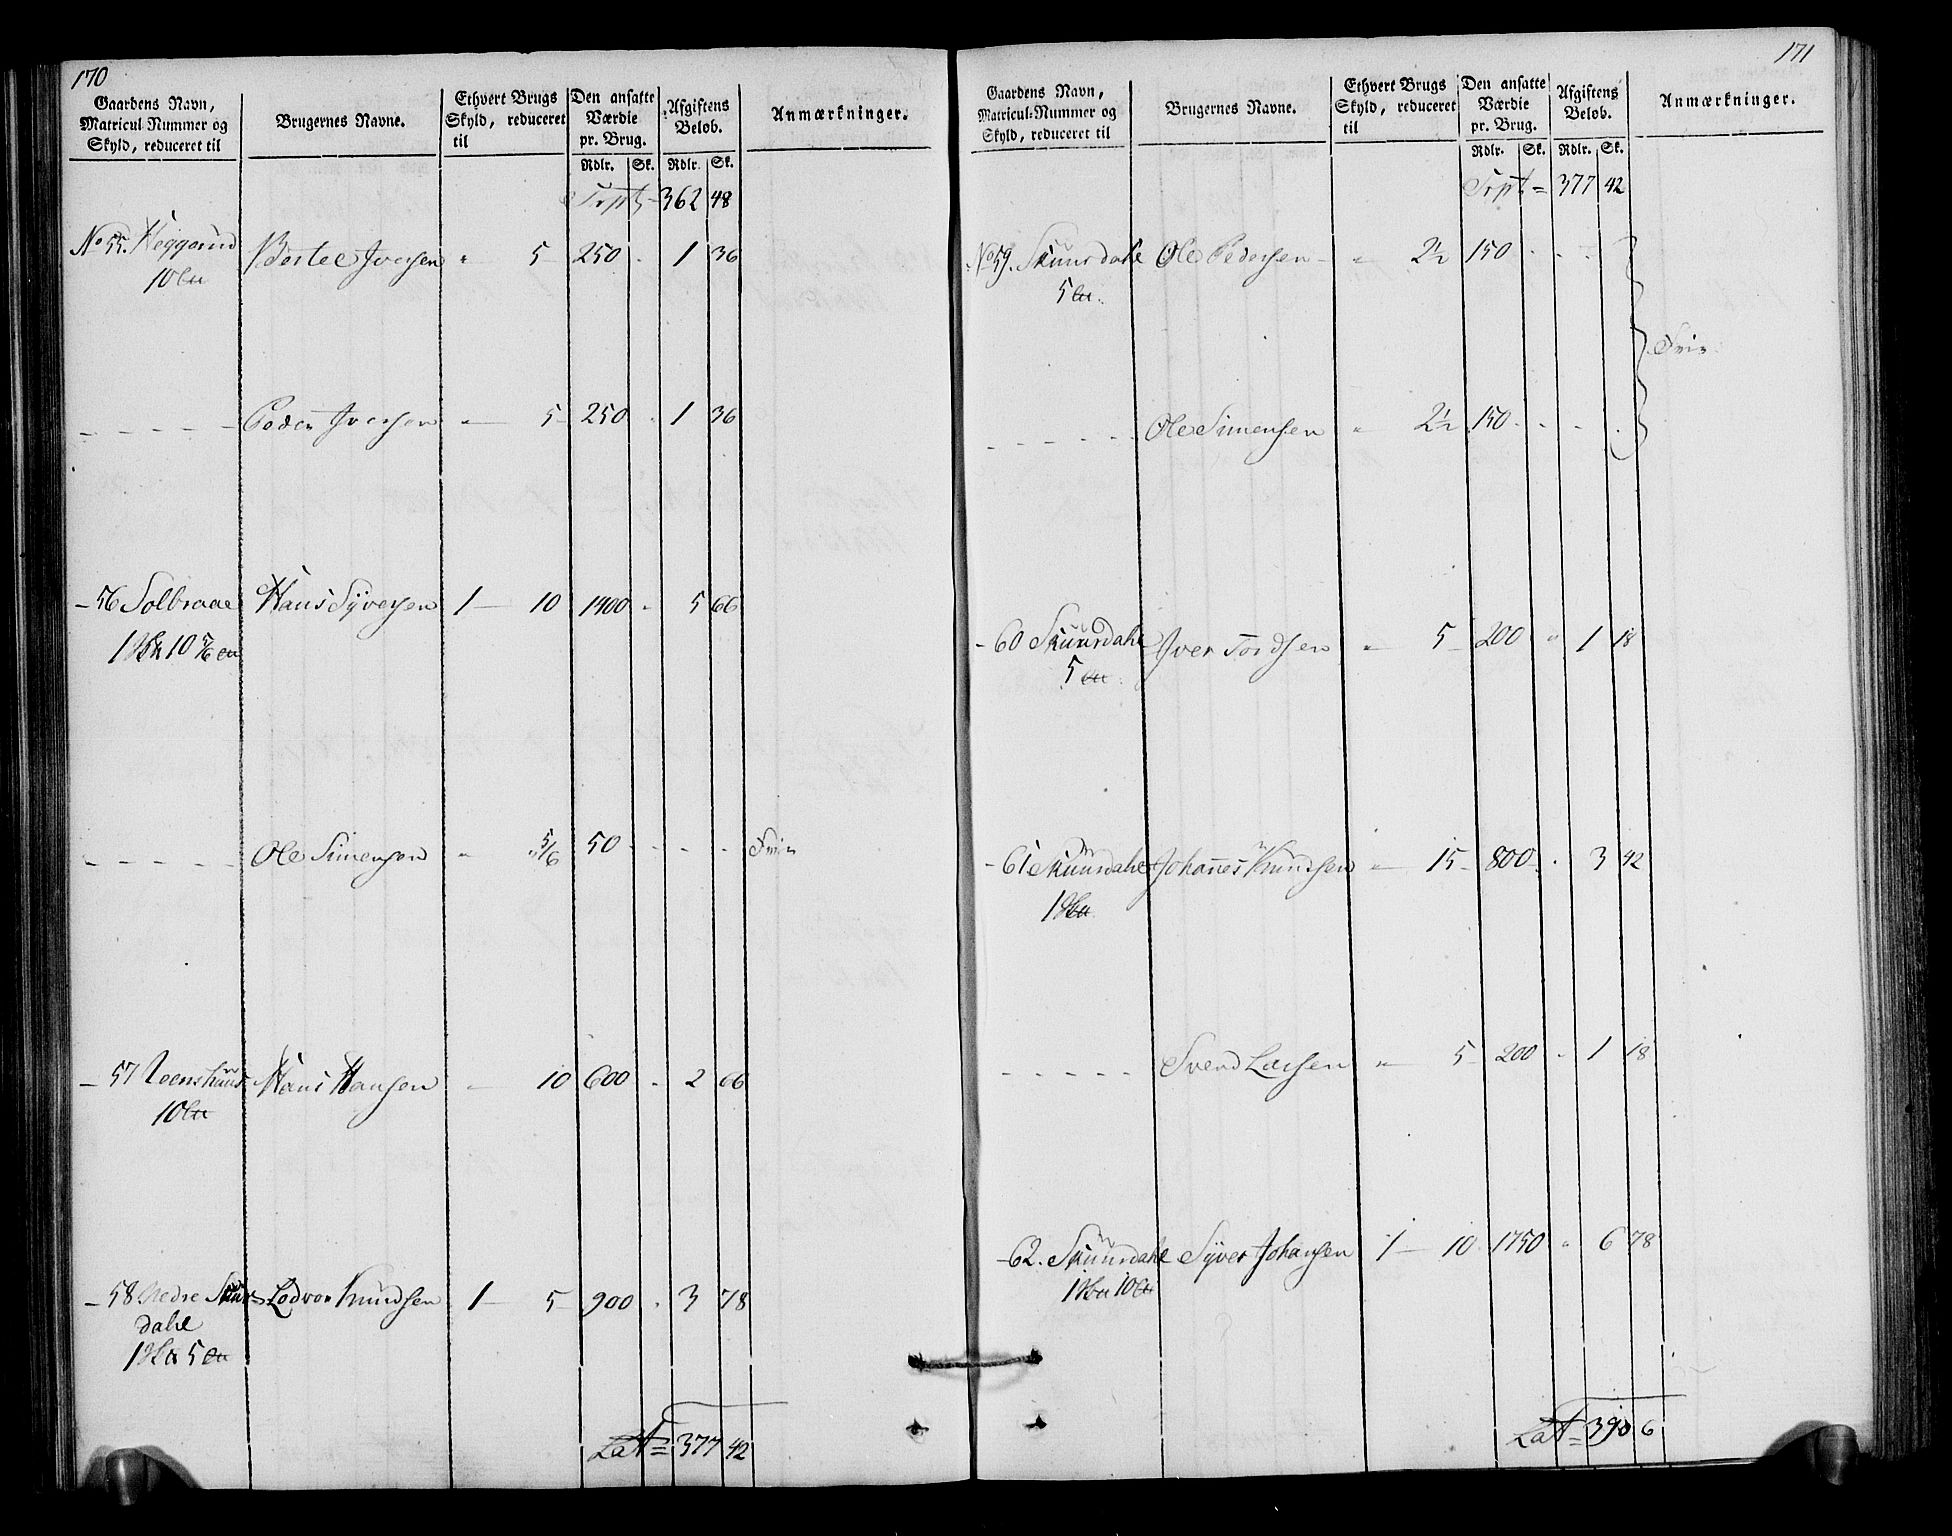 170
Gaardens Navn, Matricul-Nummer og Skyld, reduceret til | Brugernes Navne. | Ethvert Brugs Skyld, reduceret til | Den ansatte Værdie pr. Brug. | Afgiftens Beløb. | Anmærkninger.
Rdlr. | Sk. | Rdlr. | Sk.
Trpt = 362 48
No 55. Heggerud Bertel Iversen " 5 250 . 1 36
10
– – – – – Peder Iversen " 5 250 . 1 36
– 56 Solbraae Hans Syversen 1 – 10 1400 . 5 66
1 10 5/6
– – – – – Ole Simensen " " 5/6 50 . . . Frie
– 57 Hans Hansen – 10 600 . 2 66
10
– 58 Nedre Skuus= Lodvor Knudsen 1 – 5 900 . 3 78
dahl
1 5
Lat = 377 42
171
Gaardens Navn, Matricul-Nummer og Skyld, reduceret til | Brugernes Navne. | Ethvert Brugs Skyld, reduceret til | Den ansatte Værdie pr. Brug. | Afgiftens Beløb. | Anmærkninger.
Rdlr. | Sk. | Rdlr. | Sk.
Trpt = 377 42
No 59. Skuusdahl Ole Pedersen – " 2½ 150 . . .
5
Frie
– – – – – Ole Simensen " 2½ 150 . . .
– 60 Skuusdahl Iver Tordsen " 5 200 " 1 18
5
– 61 Skuusdahl Johannes Knudsen " 15 800 . 3 42
1
– – – – – Svend Larsen " 5 200 . 1 18
– 62. Skuusdahl Syver Johansen 1 – 10 1750 " 6 78
1 10
Lat = 390 6